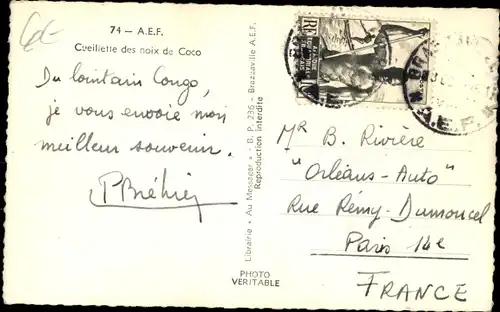 74 — A.E.F.
Cueillette des noix de Coco
Du lointain Congo,
je vous envoie mon
meilleur souvenir.
PBréhier
Librairie « Au Messager » - B. P. 236 - Brazzaville A.E.F.
Reproduction interdite
PHOTO
VERITABLE
Mr B. Rivière
"Orléans-Auto"
Rue Rémy-Dumoncel
Paris 14e
FRANCE
A.E.F.